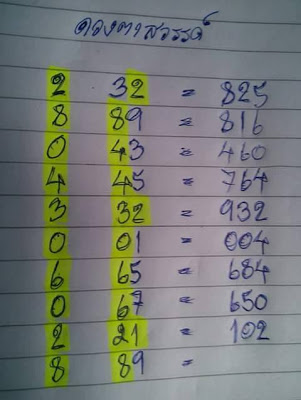 ดวงตาสวรรค์
2 32 = 825
8 89 = 816
0 43 = 460
4 45 = 764
3 32 = 932
0 01 = 004
6 65 = 684
0 67 = 650
2 21 = 102
8 89 =